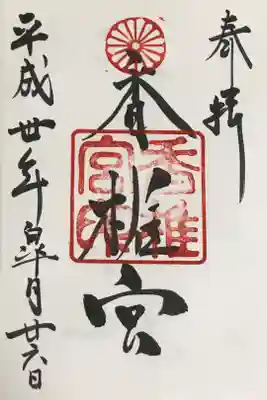 奉拝
香椎宮
香椎宮印
平成卅年皐月廿六日